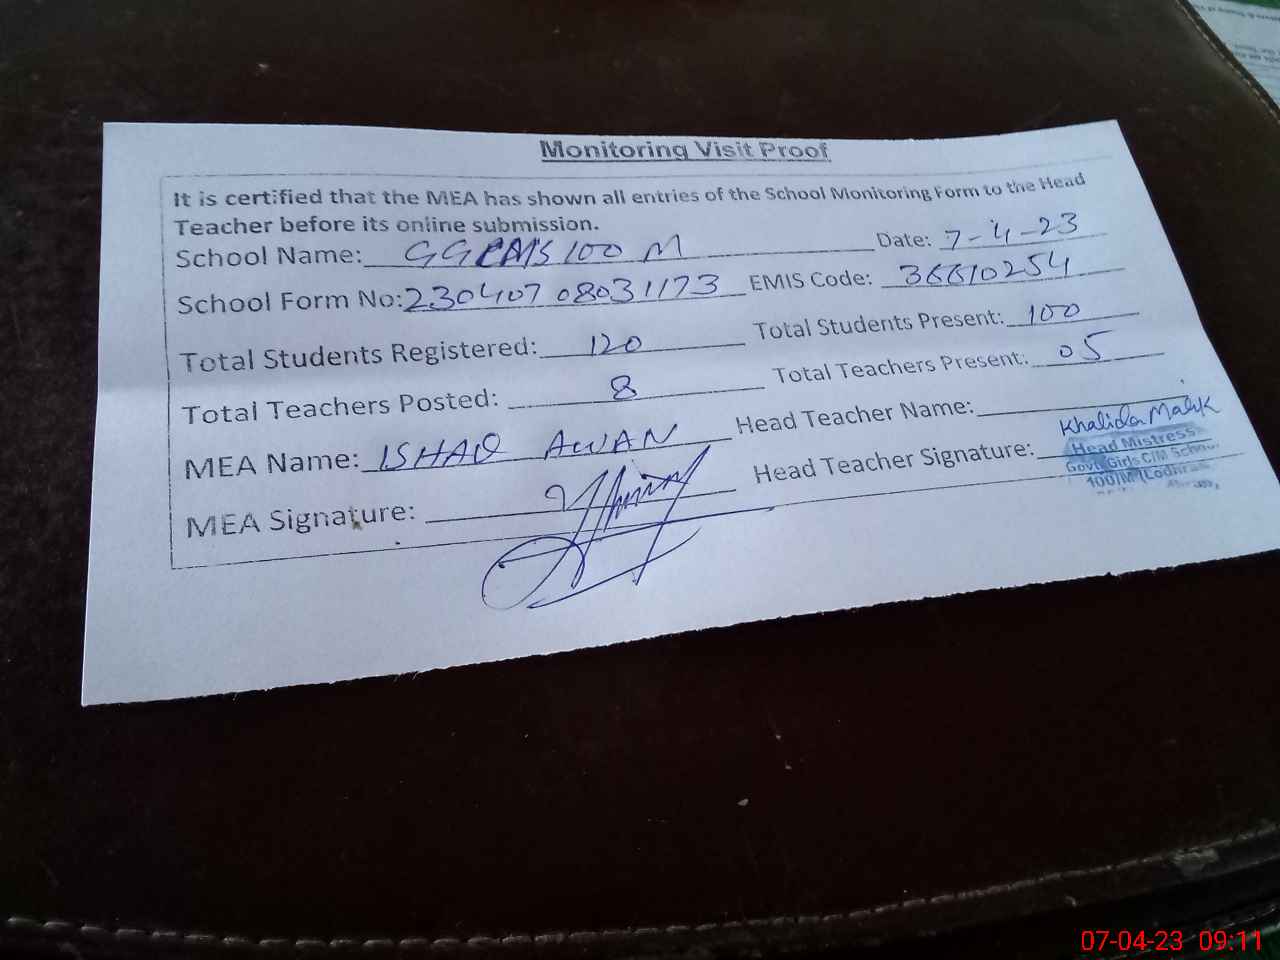 Monitoring Visit Proof
It is certified that the MEA has shown all entries of the School Monitoring Form to the Head
Teacher before its online submission.
School Name: GGCMS 100 M Date: 7-4-23
School Form No: 230407 08031173 EMIS Code: 36610254
Total Students Registered: 120 Total Students Present: 100
Total Teachers Posted: 8 Total Teachers Present: 05
MEA Name: ISHAQ AWAN Head Teacher Name: Khalida Malik
MEA Signature: Head Teacher Signature:
Head Mistress
Govt. Girls C/M School
100/M (Lodhran)
07-04-23 09:11